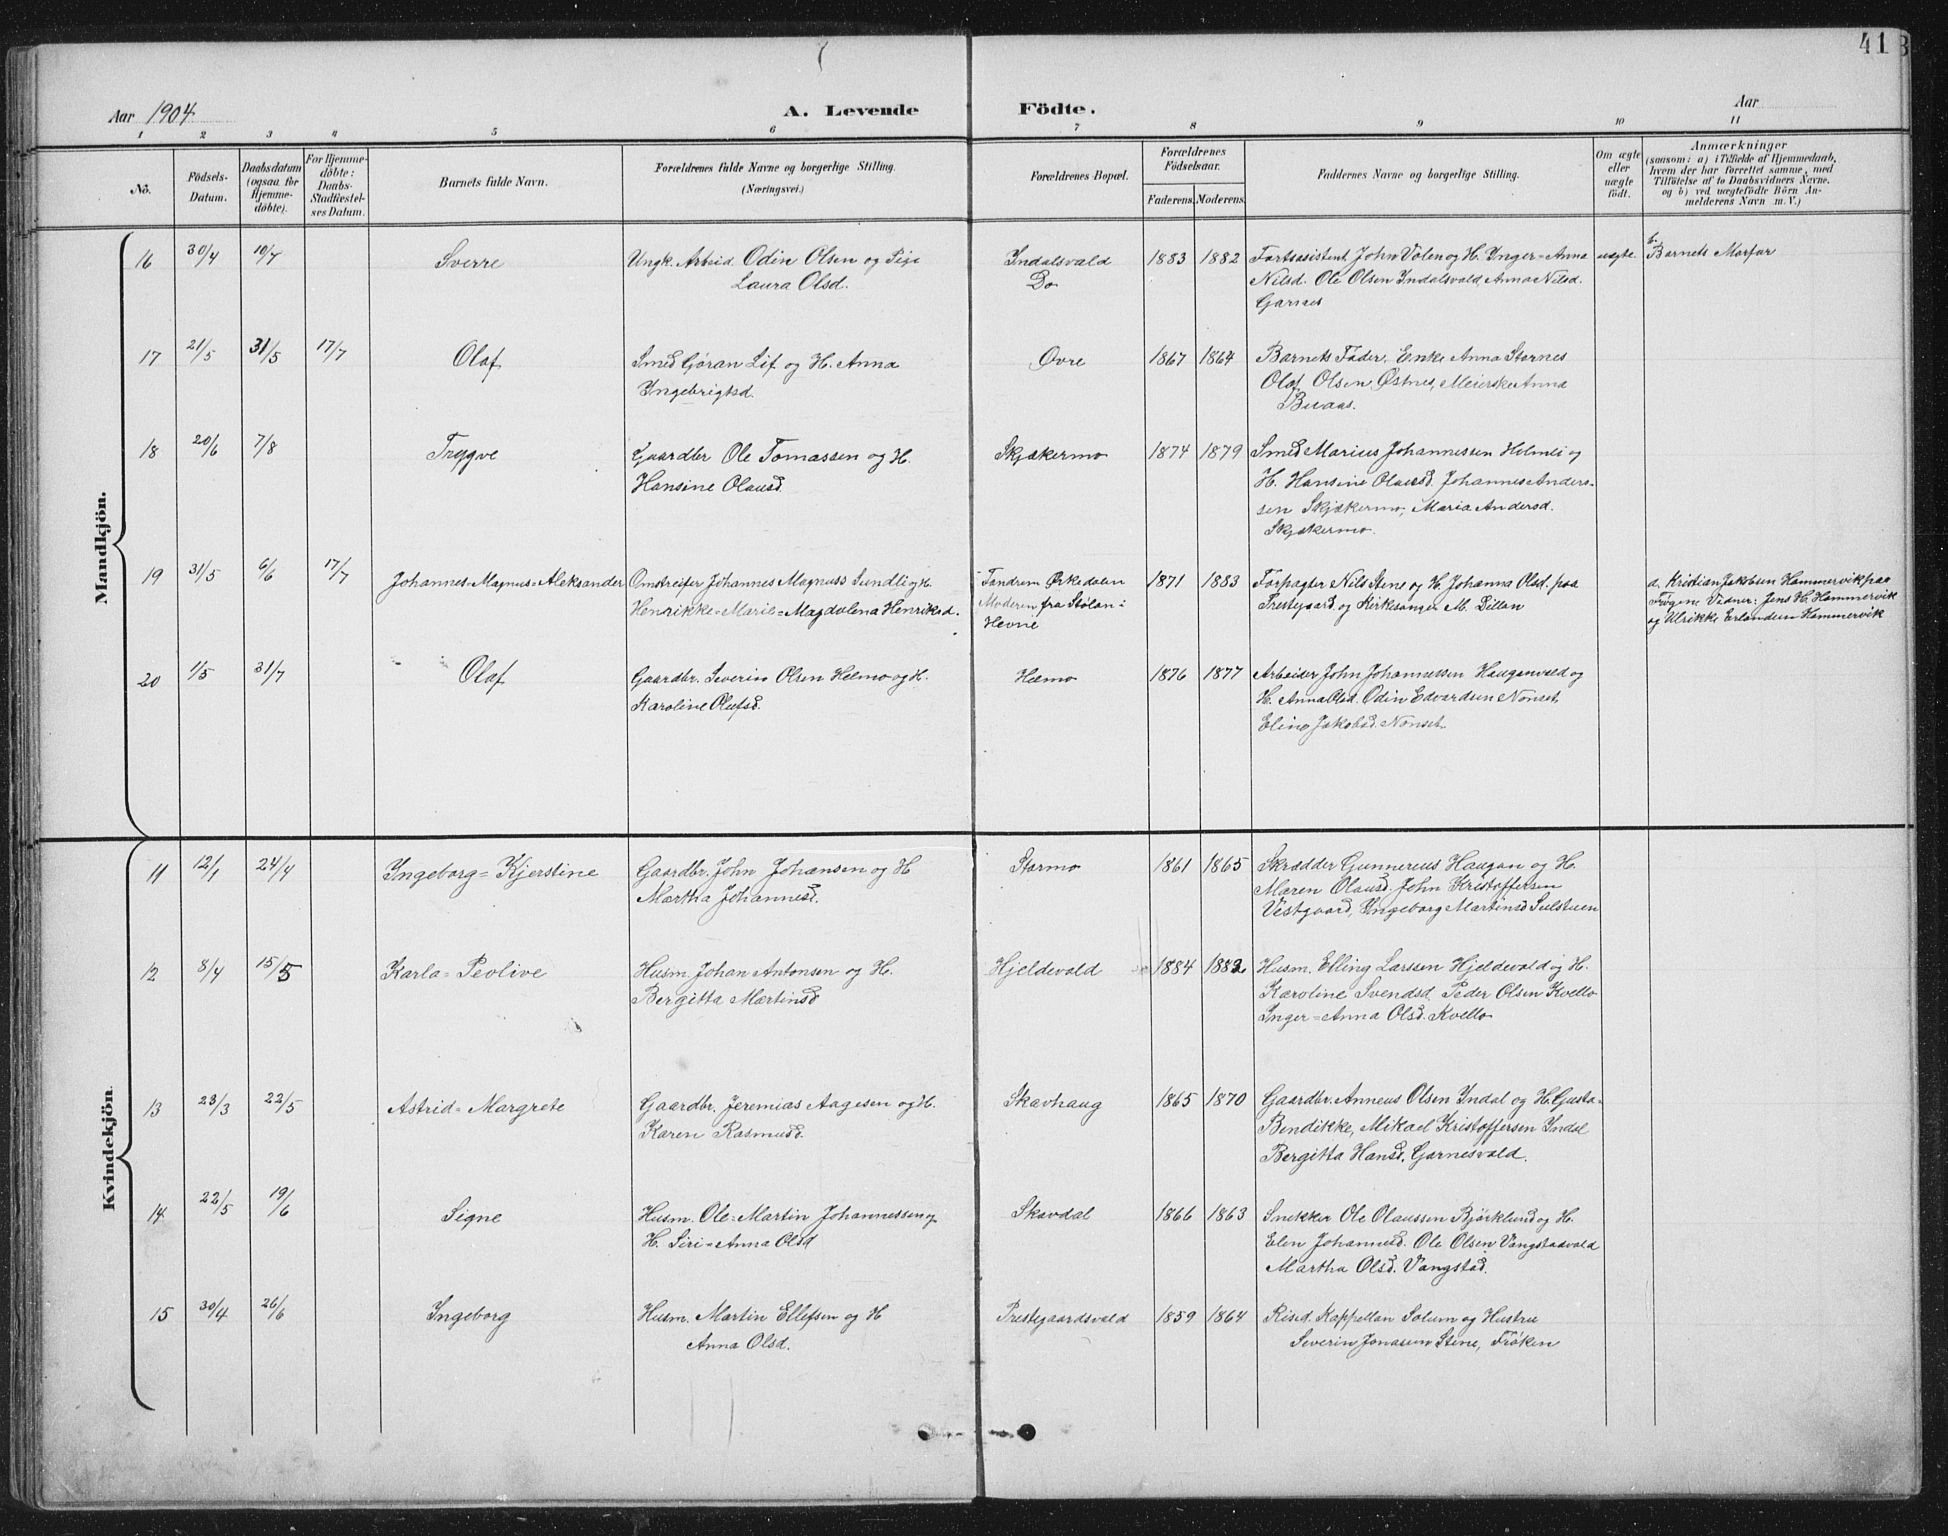 41
Aar 1904 A. Levende Födte. Aar
1 2 3 4 5 6 7 8 9 10 11
No. Födsels-Datum. Daabsdatum (ogsaa for Hjemmedöbte). For Hjemmedöbte: Daabs-Stadfæstelses Datum. Barnets fulde Navn. Forældrenes fulde Navne og borgerlige Stilling. (Næringsvei.) Forældrenes Bopæl. Forældrenes Födselsaar. Faderens. Moderens. Faddernes Navne og borgerlige Stilling. Om ægte eller uægte födt. Anmærkninger (saasom: a) i Tilfælde af Hjemmedaab, hvem der har forrettet samme, med Tilföielse af to Daabsvidners Navne. og b) ved uægtefödte Börn Anmelderens Navn m. V.)
Mandkjön.
16 30/4 10/7 Sverre Ungk. Arbeid. Odin Olsen og Pige Indalsvald 1883 1882 Fortsasistent John Volen og H. Inger-Anna uægte b. Barnets Morfar
Laura Olsd. Do Nilsd. Ole Olsen Indalsvald, Anna Nilsd.
Garnes
17 21/5 31/5 17/7 Olaf Smed Göran Lif og H. Anna Øvre 1867 1864 Barnets Fader, Enke Anna Stornes
Ingebrigtsd. Olaf Olsen Østnes, Meierske Anna
Buaas.
18 20/6 7/8 Trygve Gaardbr Ole Tomassen og H. Skjækermo 1874 1879 Smed Marius Johannessen Helmei og
Hansine Olausd. H. Hansine Olausd. Johannes Anders-
sen Skjækermo, Maria Andersd.
Skjækermo.
19 31/5 6/6 17/7 Johannes-Magnus-Aleksander Omstreifer Johannes Magnuss Sundli og H. Tandrem Ørkedalen 1871 1883 Forpagter Nils Stene og H. Johanna Olsd. paa a. Kristian Jakobsen Hammervik paa
Henrikke-Marie-Magdalena Henriksd. Moderen fra Stølan i Prestegaard og Kirksanger M. Dillan Frøyene Vidner: Jens H. Hammervik
Hevne og Ulrikke Erlandsen Hammervik
20 1/5 31/7 Olaf Gaardbr. Severin Olsen Helmo og H. Helmo 1876 1877 Arbeider John Johannessen Hauganvald og
Karoline Olufsd. H. Anna Olsd. Odin Edvardsen Nonset,
Eline Jakobsd. Nonset.
Kvindekjön.
11 12/1 24/4 Ingeborg-Kjerstine Gaardbr. John Johansen og H Stormo 1861 1865 Skrædder Gunnereus Haugan og H.
Martha Johannesd. Maren Olausd. John Kristoffersen
Vestgaard, Ingeborg Martinsd Sulstuen
12 8/4 15/5 Karla-Peolive Husm. Johan Antonsen og H. Hjeldevald 1884 1882 Husm. Elling Larssen Hjeldevald og H.
Bergitta Martinsd Karoline Svendsd. Peder Olsen Kvello
Inger-Anna Olsd. Kvello
13 23/3 22/5 Astrid-Margrete Gaardbr. Jeremias Aagesen og H. Skavhaug 1865 1870 Gaardbr. Anneus Olsen Indal og H. Gusta-
Karen Rasmusd. Bendikke, Mikael Kristoffersen Indal
Bergitta Hansd. Garnesvald.
14 22/5 19/6 Signe Husm. Ole-Martin Johannessen og Skavdal 1866 1863 Snekker Ole Olaussen Björklund og H.
H. Siri-Anna Olsd Elen Johannesd. Ole Olsen Vangstadvald
Martha Olsd. Vangstad.
15 30/4 26/6 Ingeborg Husm. Martin Ellefsen og H Prestegaardsvald 1859 1864 Resid. Kappellan Solum og Hustru
Anna Olsd. Severin Jonasen Stene, Frøken